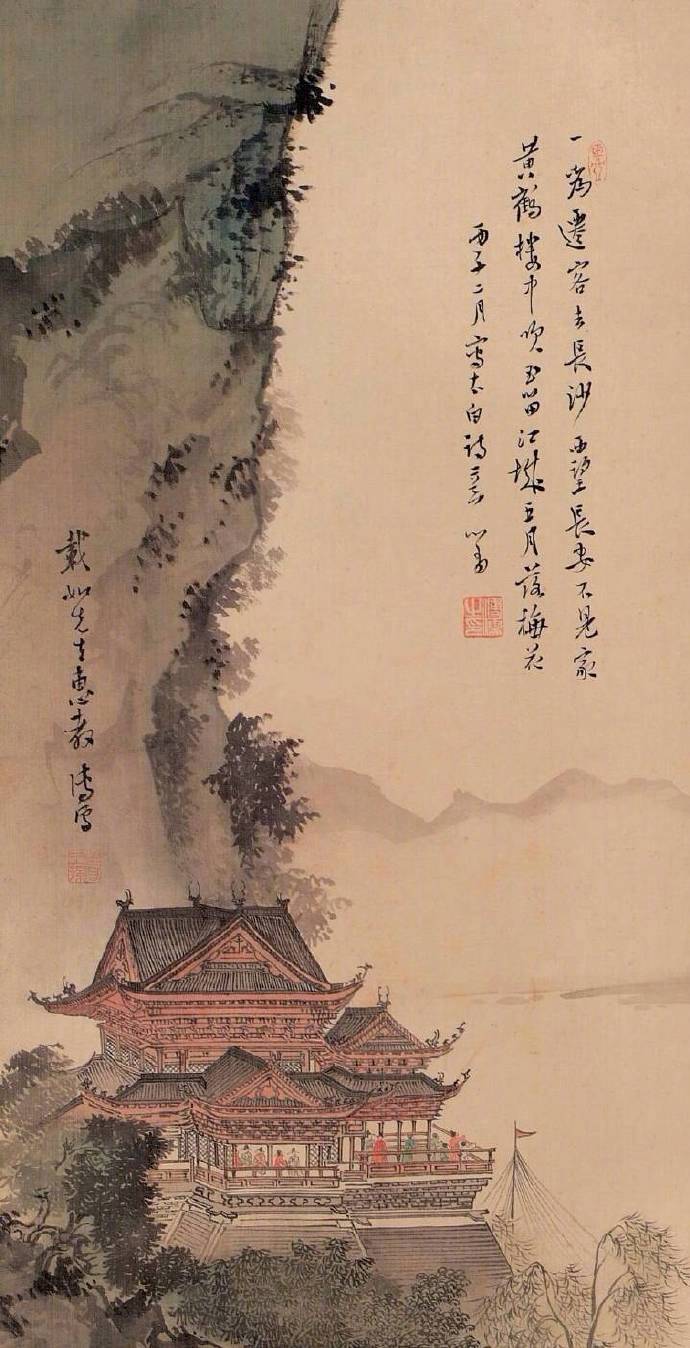 一為遷客去長沙西望長安不見家
黃鶴樓中吹玉笛江城五月落梅花
丙子二月寫太白詩意心畬
載如先生惠教溥儒